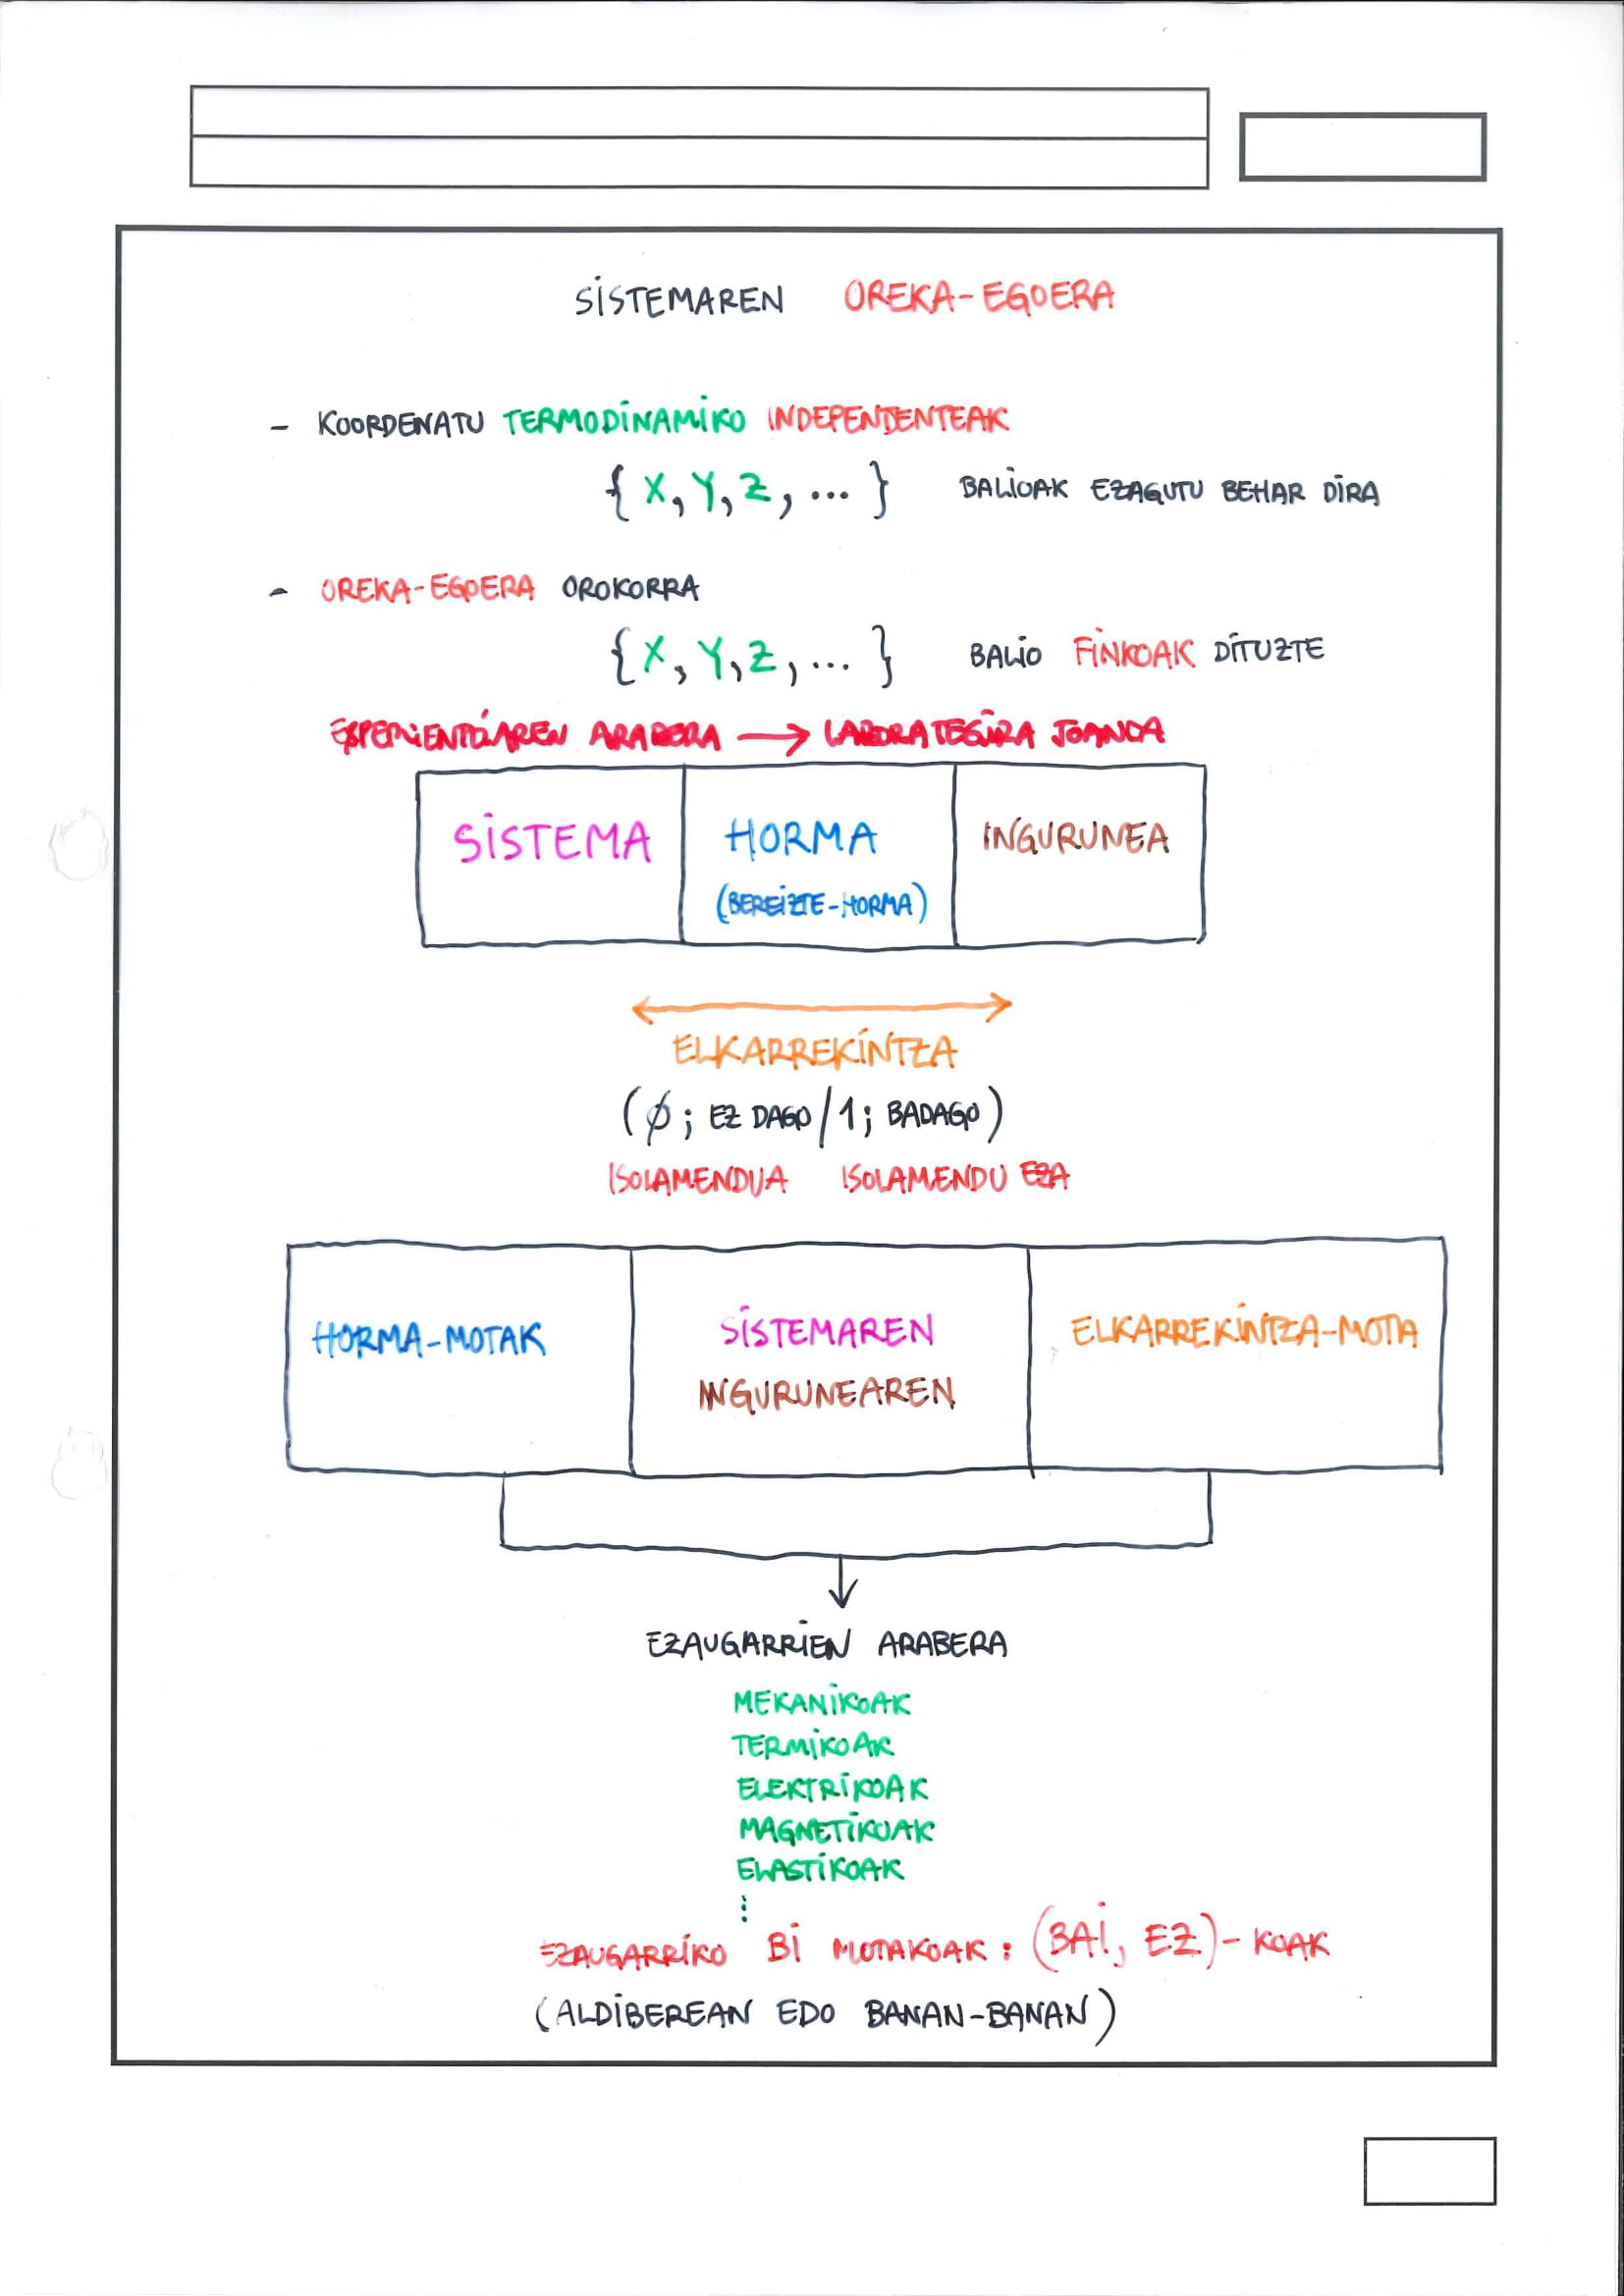 SISTEMAREN OREKA-EGOERA
- KOORDENATU TERMODINAMIKO INDEPENDENTEAK
{X, Y, Z, ...} BALIOAK EZAGUTU BEHAR DIRA
- OREKA-EGOERA OROKORRA
{X, Y, Z, ...} BALIO FINKOAK DITUZTE
ESPERIENTZIAREN ARABERA → LABORATEGIRA JOANDA
SISTEMA HORMA INGURUNEA
(BEREIZTE-HORMA)
ELKARREKINTZA
(Ø; EZ DAGO/1; BADAGO)
ISOLAMENDUA ISOLAMENDU EZA
HORMA-MOTAK SISTEMAREN ELKARREKINTZA-MOTA
INGURUNEAREN
EZAUGARRIEN ARABERA
MEKANIKOAK
TERMIKOAK
ELEKTRIKOAK
MAGNETIKOAK
ELASTIKOAK
⋮
EZAUGARRIKO BI MOTAKOAK: (BAI, EZ)-KOAK
(ALDIBEREAN EDO BANAN-BANAN)